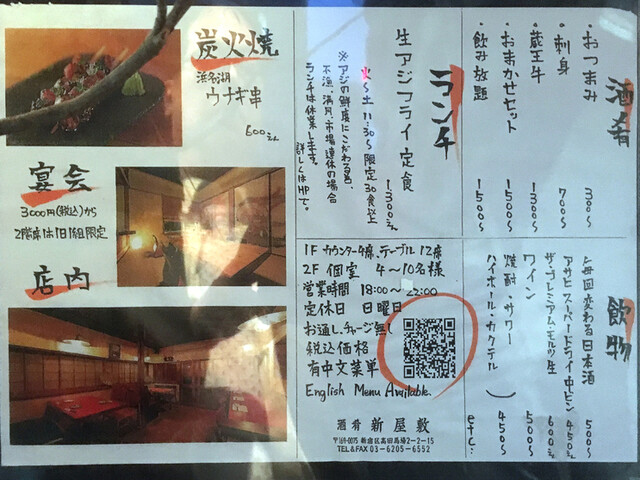 炭火焼
浜名湖
ウナギ串
600えん
宴会
3000円(税込)から
2階席は1日1組限定
店内
ランチ
生アジフライ定食
1300えん
火〜土 11:30〜 限定30食以上
※アジの鮮度にこだわる為、
不漁、満月、市場連休の場合
ランチは休業します。
詳しくはHPで。
酒肴
・おつまみ 300〜
・刺身 700〜
・蔵王牛 1300〜
・おまかせセット 1500〜
・飲み放題 1500〜
1F カウンター4席、テーブル12席
2F 個室 4〜10名様
営業時間 18:00〜22:00
定休日 日曜日
お通し、チャージ無!
税込価格
有中文菜单
English Menu Available.
酒肴 新屋敷
〒169-0075 新宿区高田馬場2-2-15
TEL&FAX 03-6205-6552
飲物
毎回変わる日本酒 500〜
アサヒスーパードライ中ビン 450えん
ザ・プレミアムモルツ生 600えん
ワイン 500〜
焼酎・サワー
ハイボール・カクテル 450〜
etc.